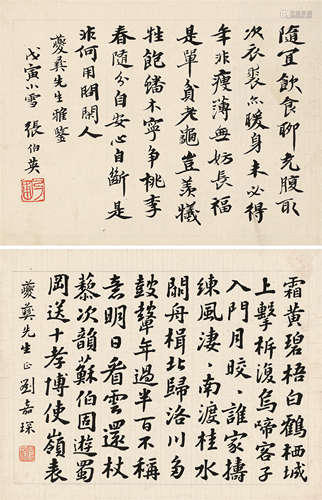 隨宜飲食聊充腹取
次衣裘亦暖身未必得
年非瘦薄無妨長福
是單貧老龜豈羨犧
牲飽蟠木寧爭桃李
春隨分自安心自斷是
非何用問閑人
夔龔先生雅鑒
戊寅小雪 張伯英
霜黃碧梧白鶴栖城
上擊柝復烏啼客子
入門月皎、誰家擣
練風淒、南渡桂水
闕舟楫北歸洛川多
鼓鼙年過半百不稱
意明日看雲還杖
藜次韻蘇伯固遊蜀
岡送孝博使嶺表
夔龔先生正 劉嘉琛